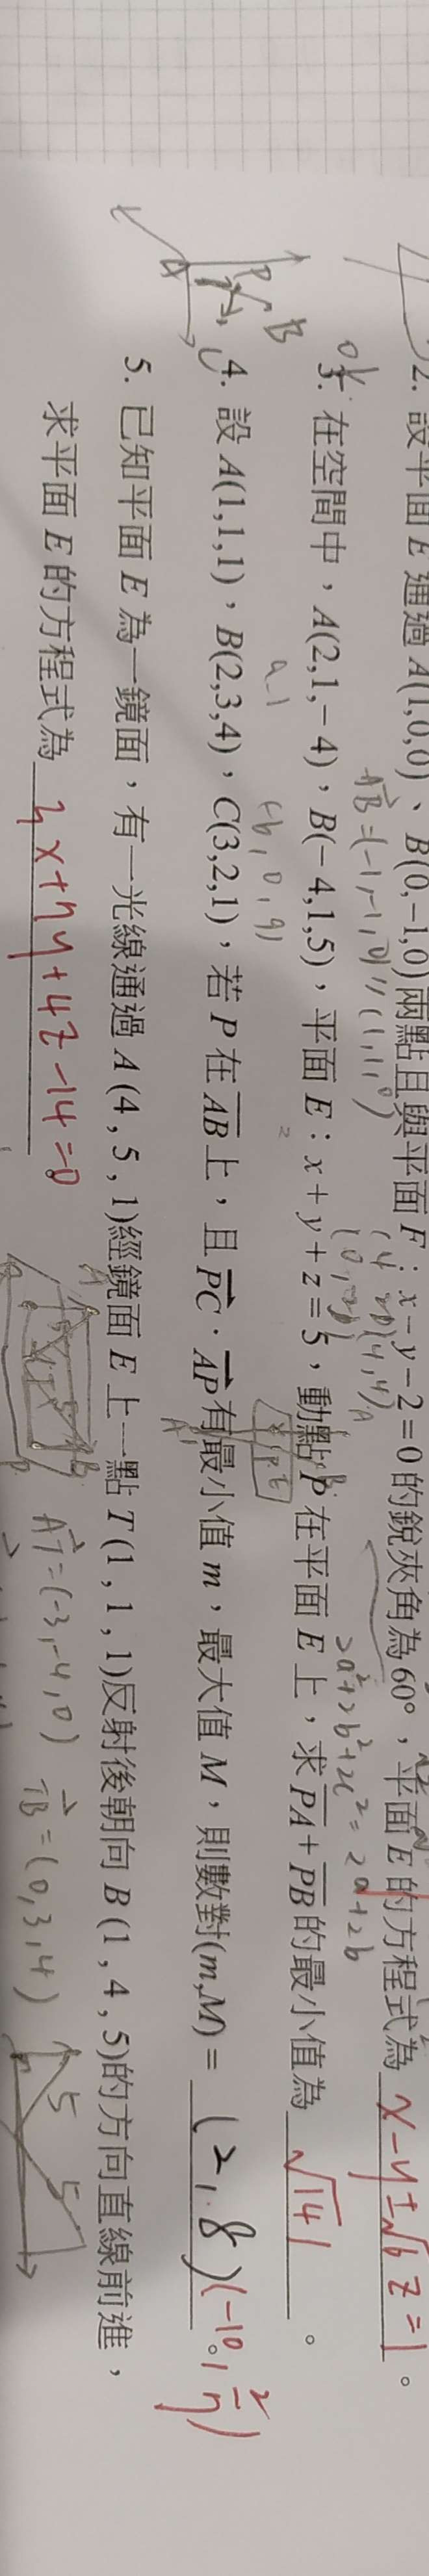 2. 設平面 E 通過 A(1,0,0)、B(0,-1,0)兩點且與平面 F：x-y-2=0 的銳夾角為 60°，平面 E 的方程式為 x-y±√6 z=1 。
AB=(-1,-1,0)//(1,1,0)
2a²+2b²+2c²=2a+2b
3. 在空間中，A(2,1,-4)，B(-4,1,5)，平面 E：x+y+z=5，動點 P 在平面 E 上，求 PA+PB 的最小值為 √141 。
(-6,0,9)
4. 設 A(1,1,1)，B(2,3,4)，C(3,2,1)，若 P 在 AB 上，且 PC·AP 有最小值 m，最大值 M，則數對(m,M)= (2,8) 。 (-10, 2/7)
5. 已知平面 E 為一鏡面，有一光線通過 A(4,5,1)經鏡面 E 上一點 T(1,1,1)反射後朝向 B(1,4,5)的方向直線前進，
求平面 E 的方程式為 3x+7y+4z-14=0 。
AT=(-3,-4,0) TB=(0,3,4)
5 5